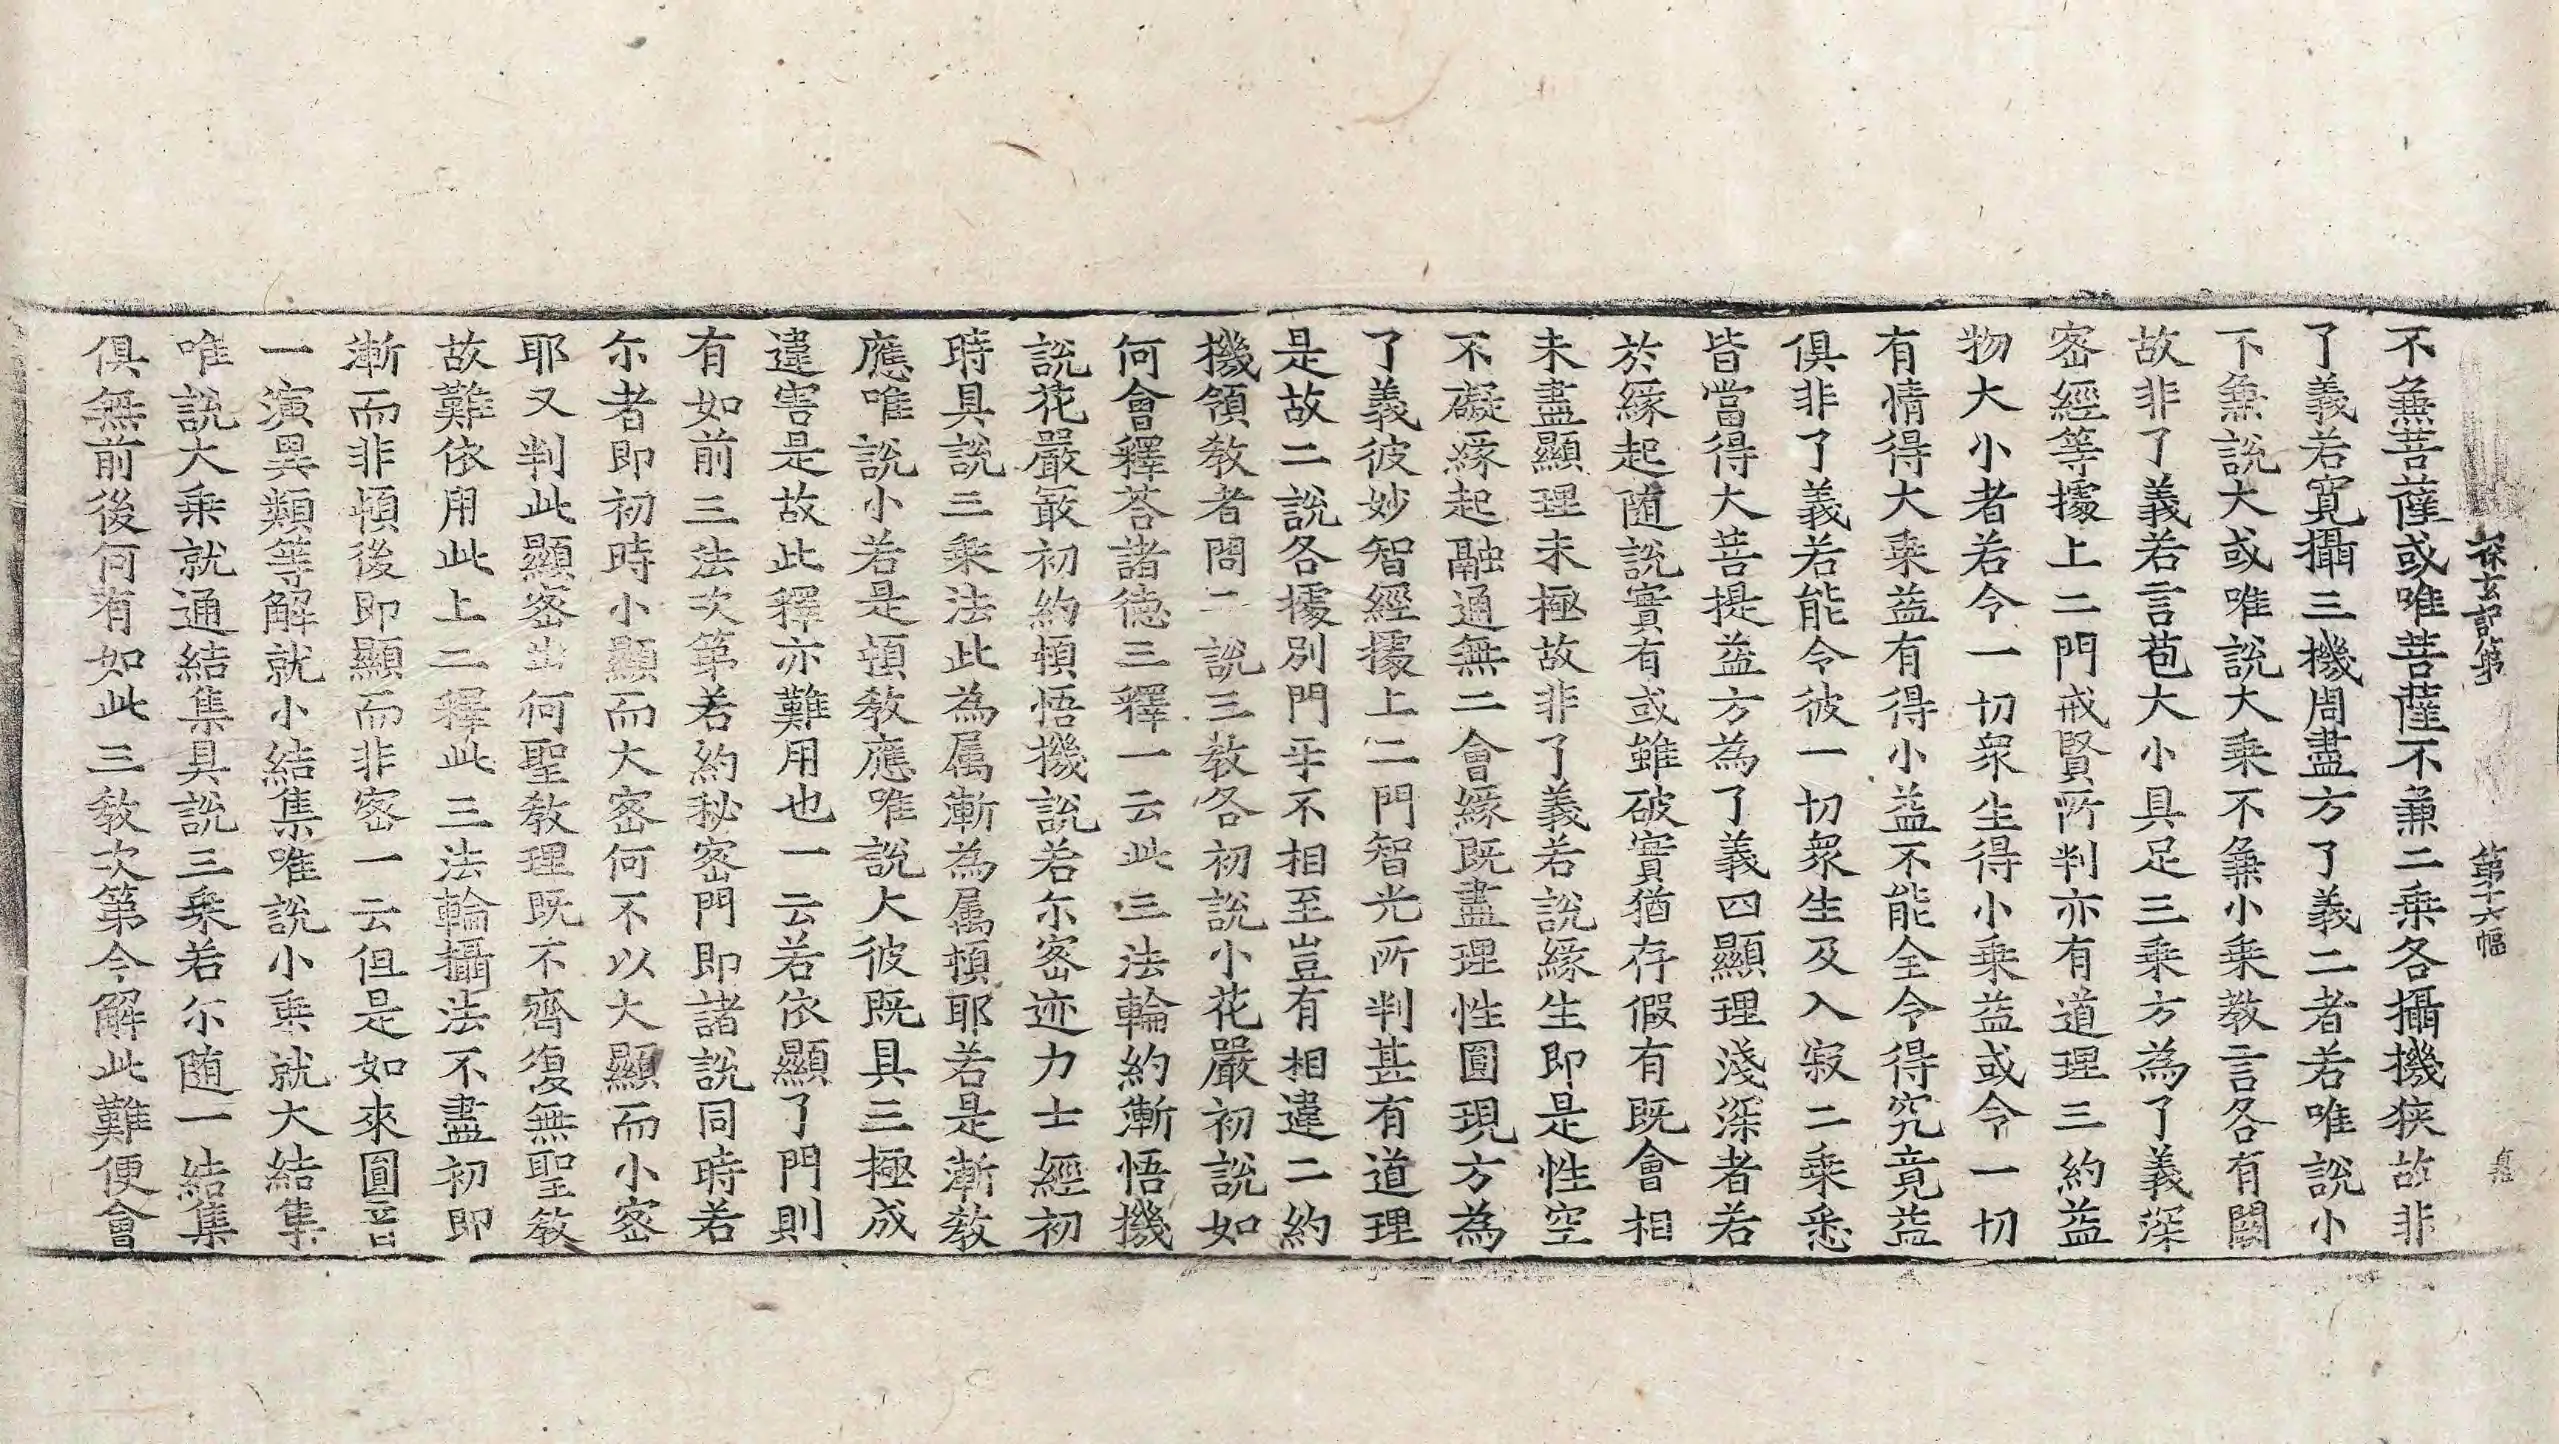 探玄記第 第十六幅
不兼菩薩或唯菩薩不兼二乗各攝機狹故非
了義若寬攝三機周盡方了義二者若唯說小
下兼說大或唯說大乗不兼小乗教言各有闕
故非了義若言苞大小具足三乗方為了義深
密經等據上二門戒賢所判亦有道理三約益
物大小者若令一切衆生得小乗益或令一切
有情得大乗益有得小益不能全令得究竟益
俱非了義若能令彼一切衆生及入寂二乗悉
皆當得大菩提益方為了義四顯理淺深者若
於緣起随說實有或雖破實猶存假有既會相
未盡顯理未極故非了義若說緣生即是性空
不礙緣起融通無二會緣既盡理性圓現方為
了義彼妙智經據上二門智光所判甚有道理
是故二說各據別門乎不相至豈有相違二約
機領教者問二說三教各初說小花嚴初說如
何會釋荅諸德三釋一云此三法輪約漸悟機
說花嚴冣初約頓悟機說若尓密迹力士經初
時具說三乗法此為属漸為属頓耶若是漸教
應唯說小若是頓教應唯說大彼既具三極成
違害是故此釋亦難用也一云若依顯了門則
有如前三法次第若約秘密門即諸說同時若
尓者即初時小顯而大密何不以大顯而小密
耶又判此顯密出何聖教理既不齊復無聖教
故難依用此上二釋此三法輪攝法不盡初即
漸而非頓後即顯而非密一云但是如來圓音
一演異類等解就小結集唯說小乗就大結集
唯說大乗就通結集具說三乗若尓随一結集
俱無前後何有如此三教次第今解此難便會